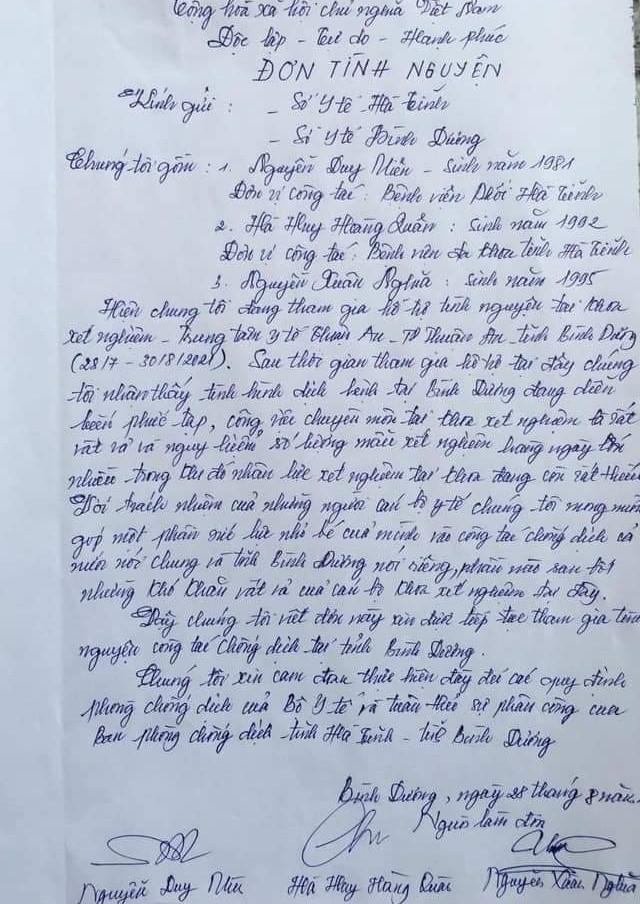 Cộng hoà xã hội chủ nghĩa Việt Nam
Độc lập - Tự do - Hạnh phúc
ĐƠN TÌNH NGUYỆN
Kính gửi : - Sở Y tế Hà Tĩnh
- Sở Y tế Bình Dương
Chúng tôi gồm : 1. Nguyễn Duy - Sinh năm 1981
Đơn vị công tác : Bệnh viện Phổi Hà Tĩnh
2. Hà Huy Hoàng Quân : Sinh năm 1992
Đơn vị công tác : Bệnh viện đa khoa tỉnh Hà Tĩnh
3. Nguyễn Xuân Nghĩa : Sinh năm 1995
Hiện chúng tôi đang tham gia hỗ trợ tình nguyện tại khoa
xét nghiệm - Trung tâm y tế Thuận An - TP Thuận An - tỉnh Bình Dương
(28/7 - 30/8/2021). Sau thời gian tham gia hỗ trợ tại đây chúng
tôi nhận thấy tình hình dịch bệnh tại Bình Dương đang diễn
biến phức tạp, công việc chuyên môn tại khoa xét nghiệm là rất
vất vả và nguy hiểm số lượng mẫu xét nghiệm hàng ngày lớn
nhiều trong khi đó nhân lực xét nghiệm tại khoa đang còn rất thiếu
Với trách nhiệm của những người cán bộ y tế chúng tôi mong muốn
góp một phần sức lực nhỏ bé của mình vào công tác chống dịch cả
nước nói chung và tỉnh Bình Dương nói riêng, phần nào san bớt
những khó khăn vất vả của cán bộ khoa xét nghiệm tại đây.
Nay chúng tôi viết đơn này xin được tiếp tục tham gia tình
nguyện công tác chống dịch tại tỉnh Bình Dương.
Chúng tôi xin cam đoan thực hiện đầy đủ các quy định
phòng chống dịch của Bộ Y tế và tuân thủ sự phân công của
Ban phòng chống dịch tỉnh Hà Tĩnh - tỉnh Bình Dương
Bình Dương, ngày 28 tháng 8 năm
Người làm đơn
Nguyễn Duy Hà Huy Hoàng Quân Nguyễn Xuân Nghĩa